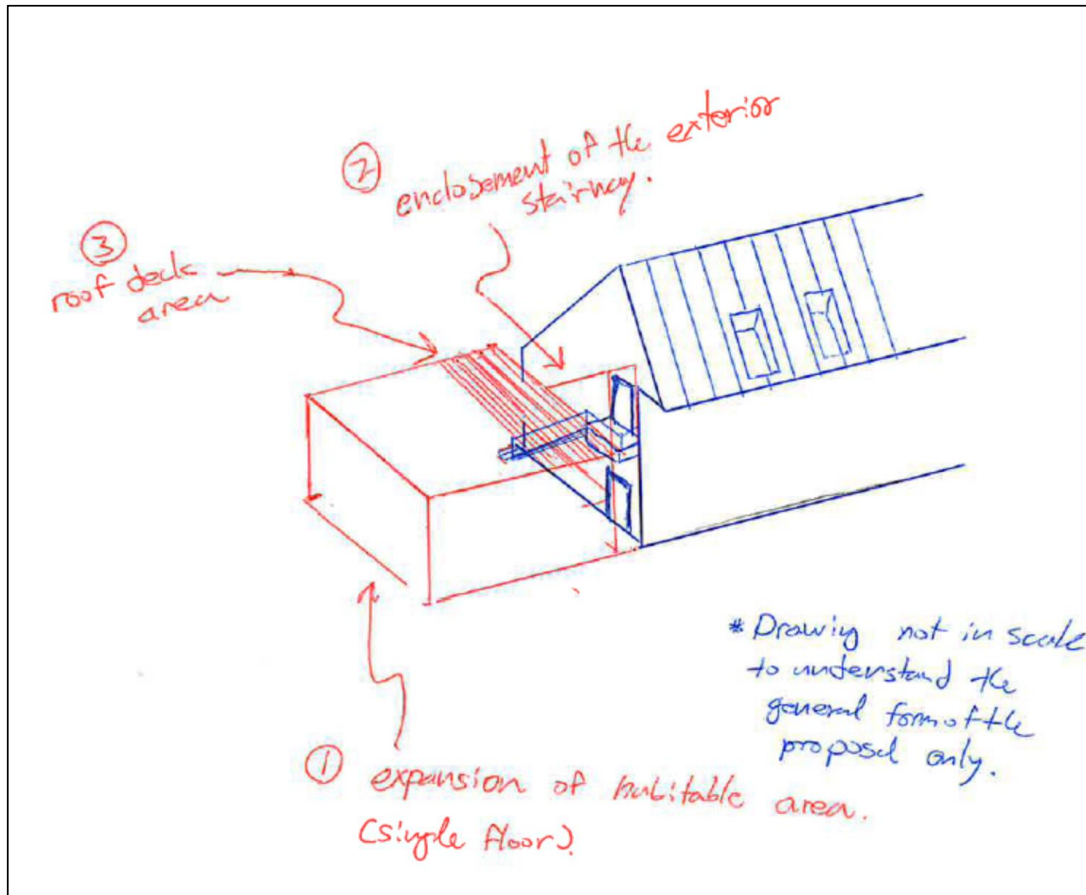 ②
enclosement of the exterior
stairway.
③
roof deck
area
* Drawing not in scale
to understand the
general form of the
proposal only.
① expansion of habitable area.
(single floor).